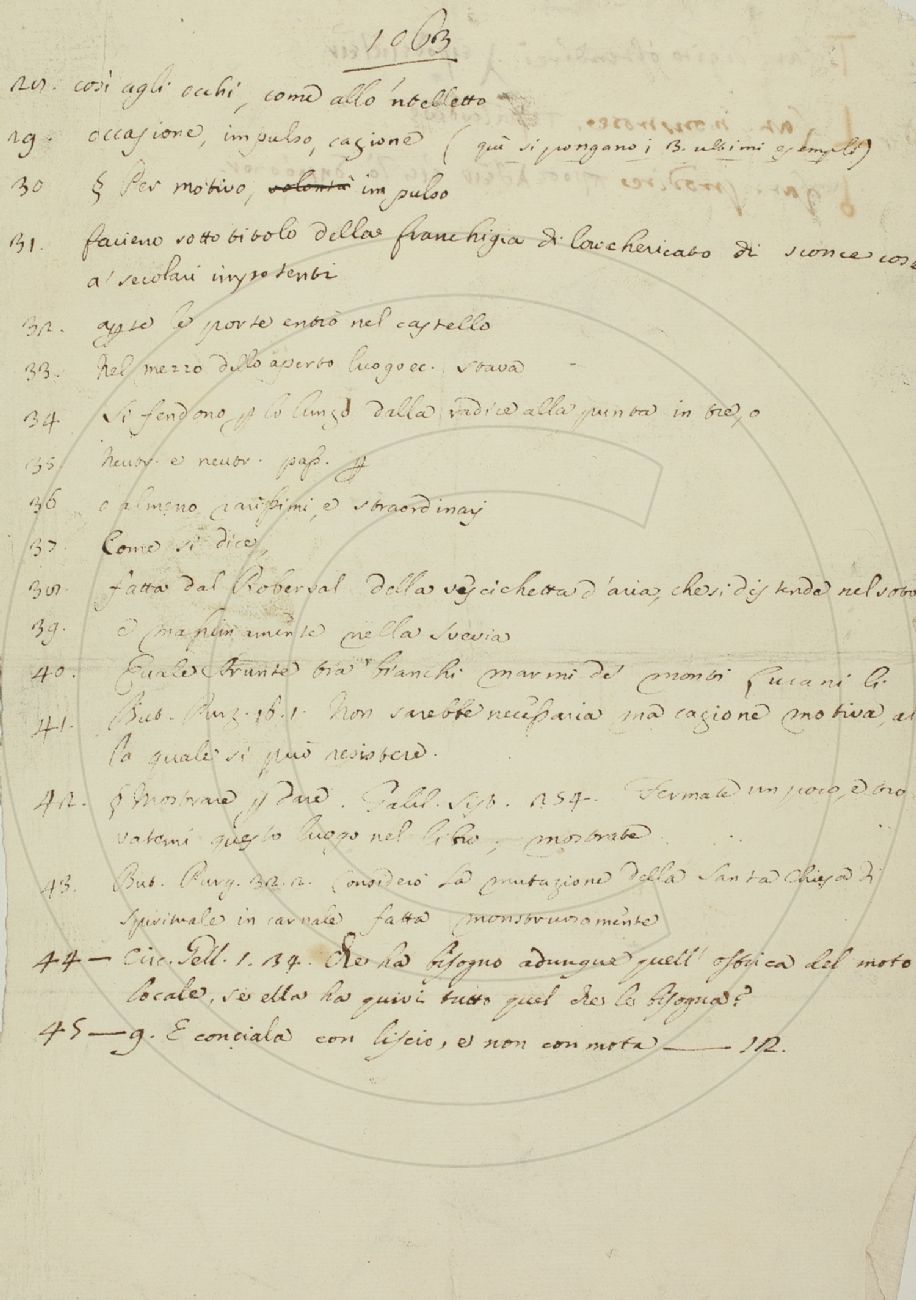 1063
28. così agli occhi, come allo 'ntelletto
29. occasione, impulso, cagione (qui si pongano i 3. ultimi esempli)
30 § Per motivo, volontà impulso
31. facieno sotto titolo della franchigia di lor chericato di sconce cose
a' secolari impotenti
32. apte le porte entrò nel castello
33. Nel mezzo dello aperto luogo ec. stava
34 Si fendono p lo lungo dalla radice alla punta in tre, o
35. Neutr. e neutr. pass.
36 o almeno rarissimi, e straordinarj
37. Come si dice,
38. fatta dal Roberval della vescichetta d'aria, che si distende nel voto
39. e massimamente nella Svevia
40. Quale Arunte tra' bianchi marmi de' monti Lucani li
41. But. Purg. 16. 1. Non sarebbe necessaria ma cagione motiva, al
la quale si può resistere.
42. § Mostrare p dare. Galil. Sist. 254. Fermate un poco, e tro
vatemi questo luogo nel libro, mostrate
43. But. Purg. 32. 2. Considerò la mutazione della Santa Chiesa di
spirituale in carnale fatta monstruosamente
44 — Circ. Gell. 1. 34. Che ha bisogno adunque quell' ostrica del moto
locale, se ella ha quivi tutto quel che le bisogna?
45 — 9. E conciala con liscio, e non con mota — 12.